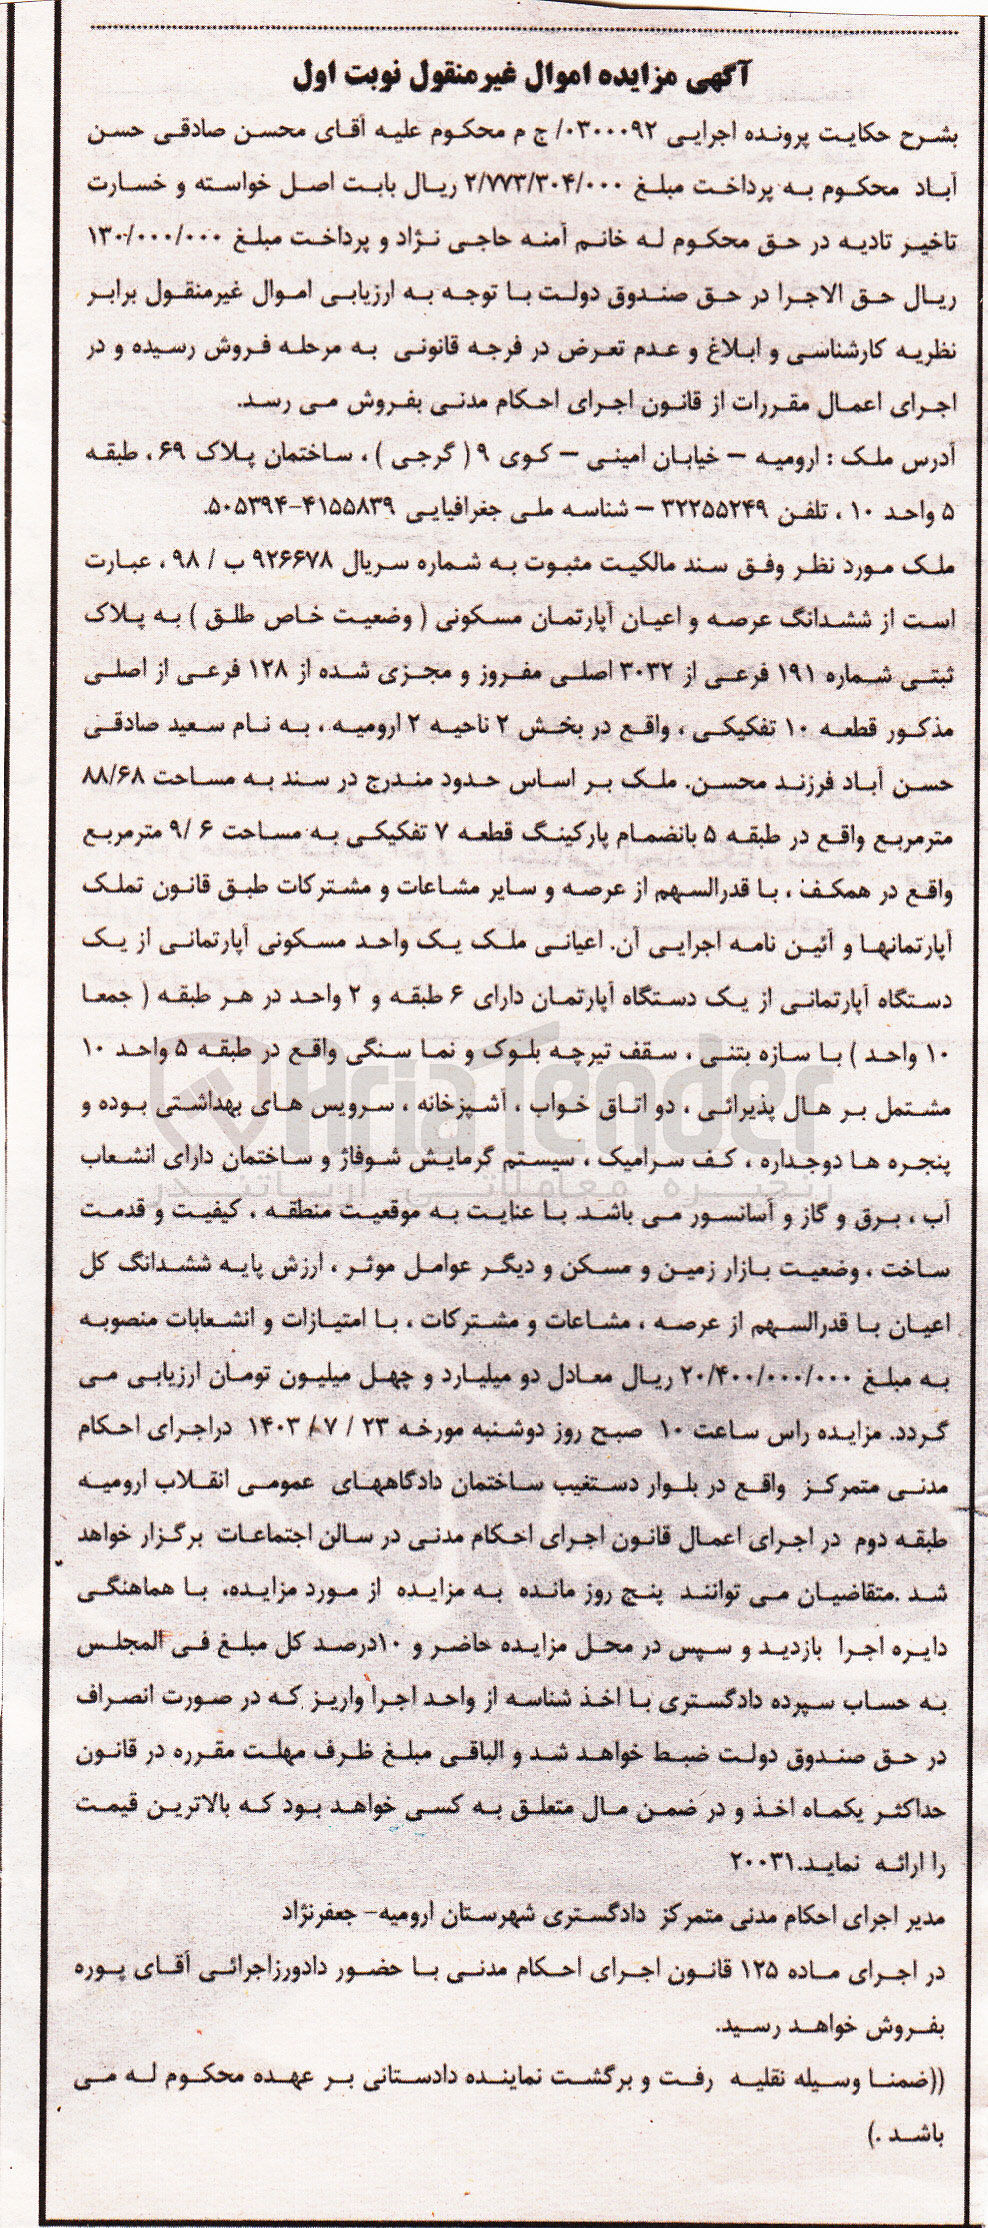 آگهی مزایده اموال غیرمنقول نوبت اول
بشرح حکایت پرونده اجرایی ۰۳۰۰۰۹۲/ ج م محکوم علیه آقای محسن صادقی حسن
آباد محکوم به پرداخت مبلغ ۲/۷۷۳/۳۰۴/۰۰۰ ریال بابت اصل خواسته و خسارت
تاخیر تادیه در حق محکوم له خانم آمنه حاجی نژاد و پرداخت مبلغ ۱۳۰/۰۰۰/۰۰۰
ریال حق الاجرا در حق صندوق دولت با توجه به ارزیابی اموال غیرمنقول برابر
نظریه کارشناسی و ابلاغ و عدم تعرض در فرجه قانونی به مرحله فروش رسیده و در
اجرای اعمال مقررات از قانون اجرای احکام مدنی بفروش می رسد.
آدرس ملک : ارومیه – خیابان امینی – کوی ۹ ( گرجی ) ، ساختمان پلاک ۶۹ ، طبقه
۵ واحد ۱۰ ، تلفن ۳۲۲۵۵۲۴۹ – شناسه ملی جغرافیایی ۴۱۵۵۸۳۹-۵۰۵۳۹۴.
ملک مورد نظر وفق سند مالکیت مثبوت به شماره سریال ۹۲۶۶۷۸ ب / ۹۸ ، عبارت
است از ششدانگ عرصه و اعیان آپارتمان مسکونی ( وضعیت خاص طلق ) به پلاک
ثبتی شماره ۱۹۱ فرعی از ۳۰۳۲ اصلی مفروز و مجزی شده از ۱۲۸ فرعی از اصلی
مذکور قطعه ۱۰ تفکیکی ، واقع در بخش ۲ ناحیه ۲ ارومیه ، به نام سعید صادقی
حسن آباد فرزند محسن. ملک بر اساس حدود مندرج در سند به مساحت ۸۸/۶۸
مترمربع واقع در طبقه ۵ بانضمام پارکینگ قطعه ۷ تفکیکی به مساحت ۶ /۹ مترمربع
واقع در همکف ، با قدرالسهم از عرصه و سایر مشاعات و مشترکات طبق قانون تملک
آپارتمانها و آئین نامه اجرایی آن. اعیانی ملک یک واحد مسکونی آپارتمانی از یک
دستگاه آپارتمانی از یک دستگاه آپارتمان دارای ۶ طبقه و ۲ واحد در هر طبقه ( جمعا
۱۰ واحد ) با سازه بتنی ، سقف تیرچه بلوک و نما سنگی واقع در طبقه ۵ واحد ۱۰
AriaTender
مشتمل بر هال پذیرائی ، دو اتاق خواب ، آشپزخانه ، سرویس های بهداشتی بوده و
پنجره ها دوجداره ، کف سرامیک ، سیستم گرمایش شوفاژ و ساختمان دارای انشعاب
زنجیره معاملاتی آریاتندر
آب ، برق و گاز و آسانسور می باشد. با عنایت به موقعیت منطقه ، کیفیت و قدمت
ساخت ، وضعیت بازار زمین و مسکن و دیگر عوامل موثر ، ارزش پایه ششدانگ کل
اعیان با قدرالسهم از عرصه ، مشاعات و مشترکات ، با امتیازات و انشعابات منصوبه
به مبلغ ۲۰/۴۰۰/۰۰۰/۰۰۰ ریال معادل دو میلیارد و چهل میلیون تومان ارزیابی می
گردد. مزایده راس ساعت ۱۰ صبح روز دوشنبه مورخه ۲۳ / ۷ /۱۴۰۳ دراجرای احکام
مدنی متمرکز واقع در بلوار دستغیب ساختمان دادگاههای عمومی انقلاب ارومیه
طبقه دوم در اجرای اعمال قانون اجرای احکام مدنی در سالن اجتماعات برگزار خواهد
شد .متقاضیان می توانند پنج روز مانده به مزایده از مورد مزایده، با هماهنگی
دایره اجرا بازدید و سپس در محل مزایده حاضر و ۱۰درصد کل مبلغ فی المجلس
به حساب سپرده دادگستری با اخذ شناسه از واحد اجرا واریز که در صورت انصراف
در حق صندوق دولت ضبط خواهد شد و الباقی مبلغ ظرف مهلت مقرره در قانون
حداکثر یکماه اخذ و در ضمن مال متعلق به کسی خواهد بود که بالاترین قیمت
را ارائه نماید.۲۰۰۳۱
مدیر اجرای احکام مدنی متمرکز دادگستری شهرستان ارومیه- جعفرنژاد
در اجرای ماده ۱۲۵ قانون اجرای احکام مدنی با حضور دادورزاجرائی آقای پوره
بفروش خواهد رسید.
((ضمنا وسیله نقلیه رفت و برگشت نماینده دادستانی بر عهده محکوم له می
باشد .)